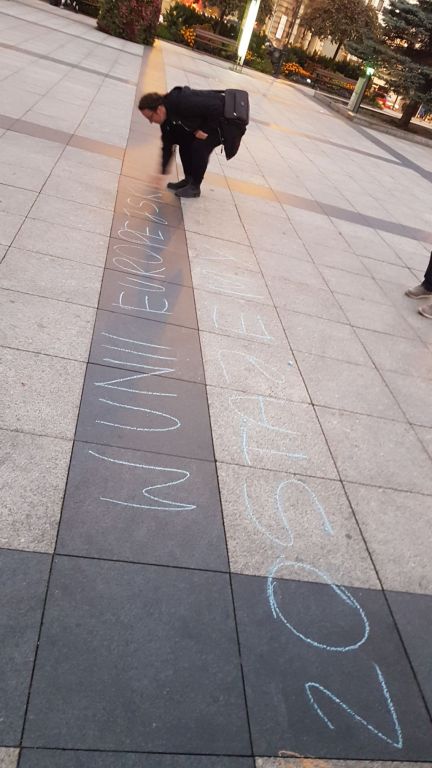 W UNII EUROPEJSKI
ZOSTAJEMY